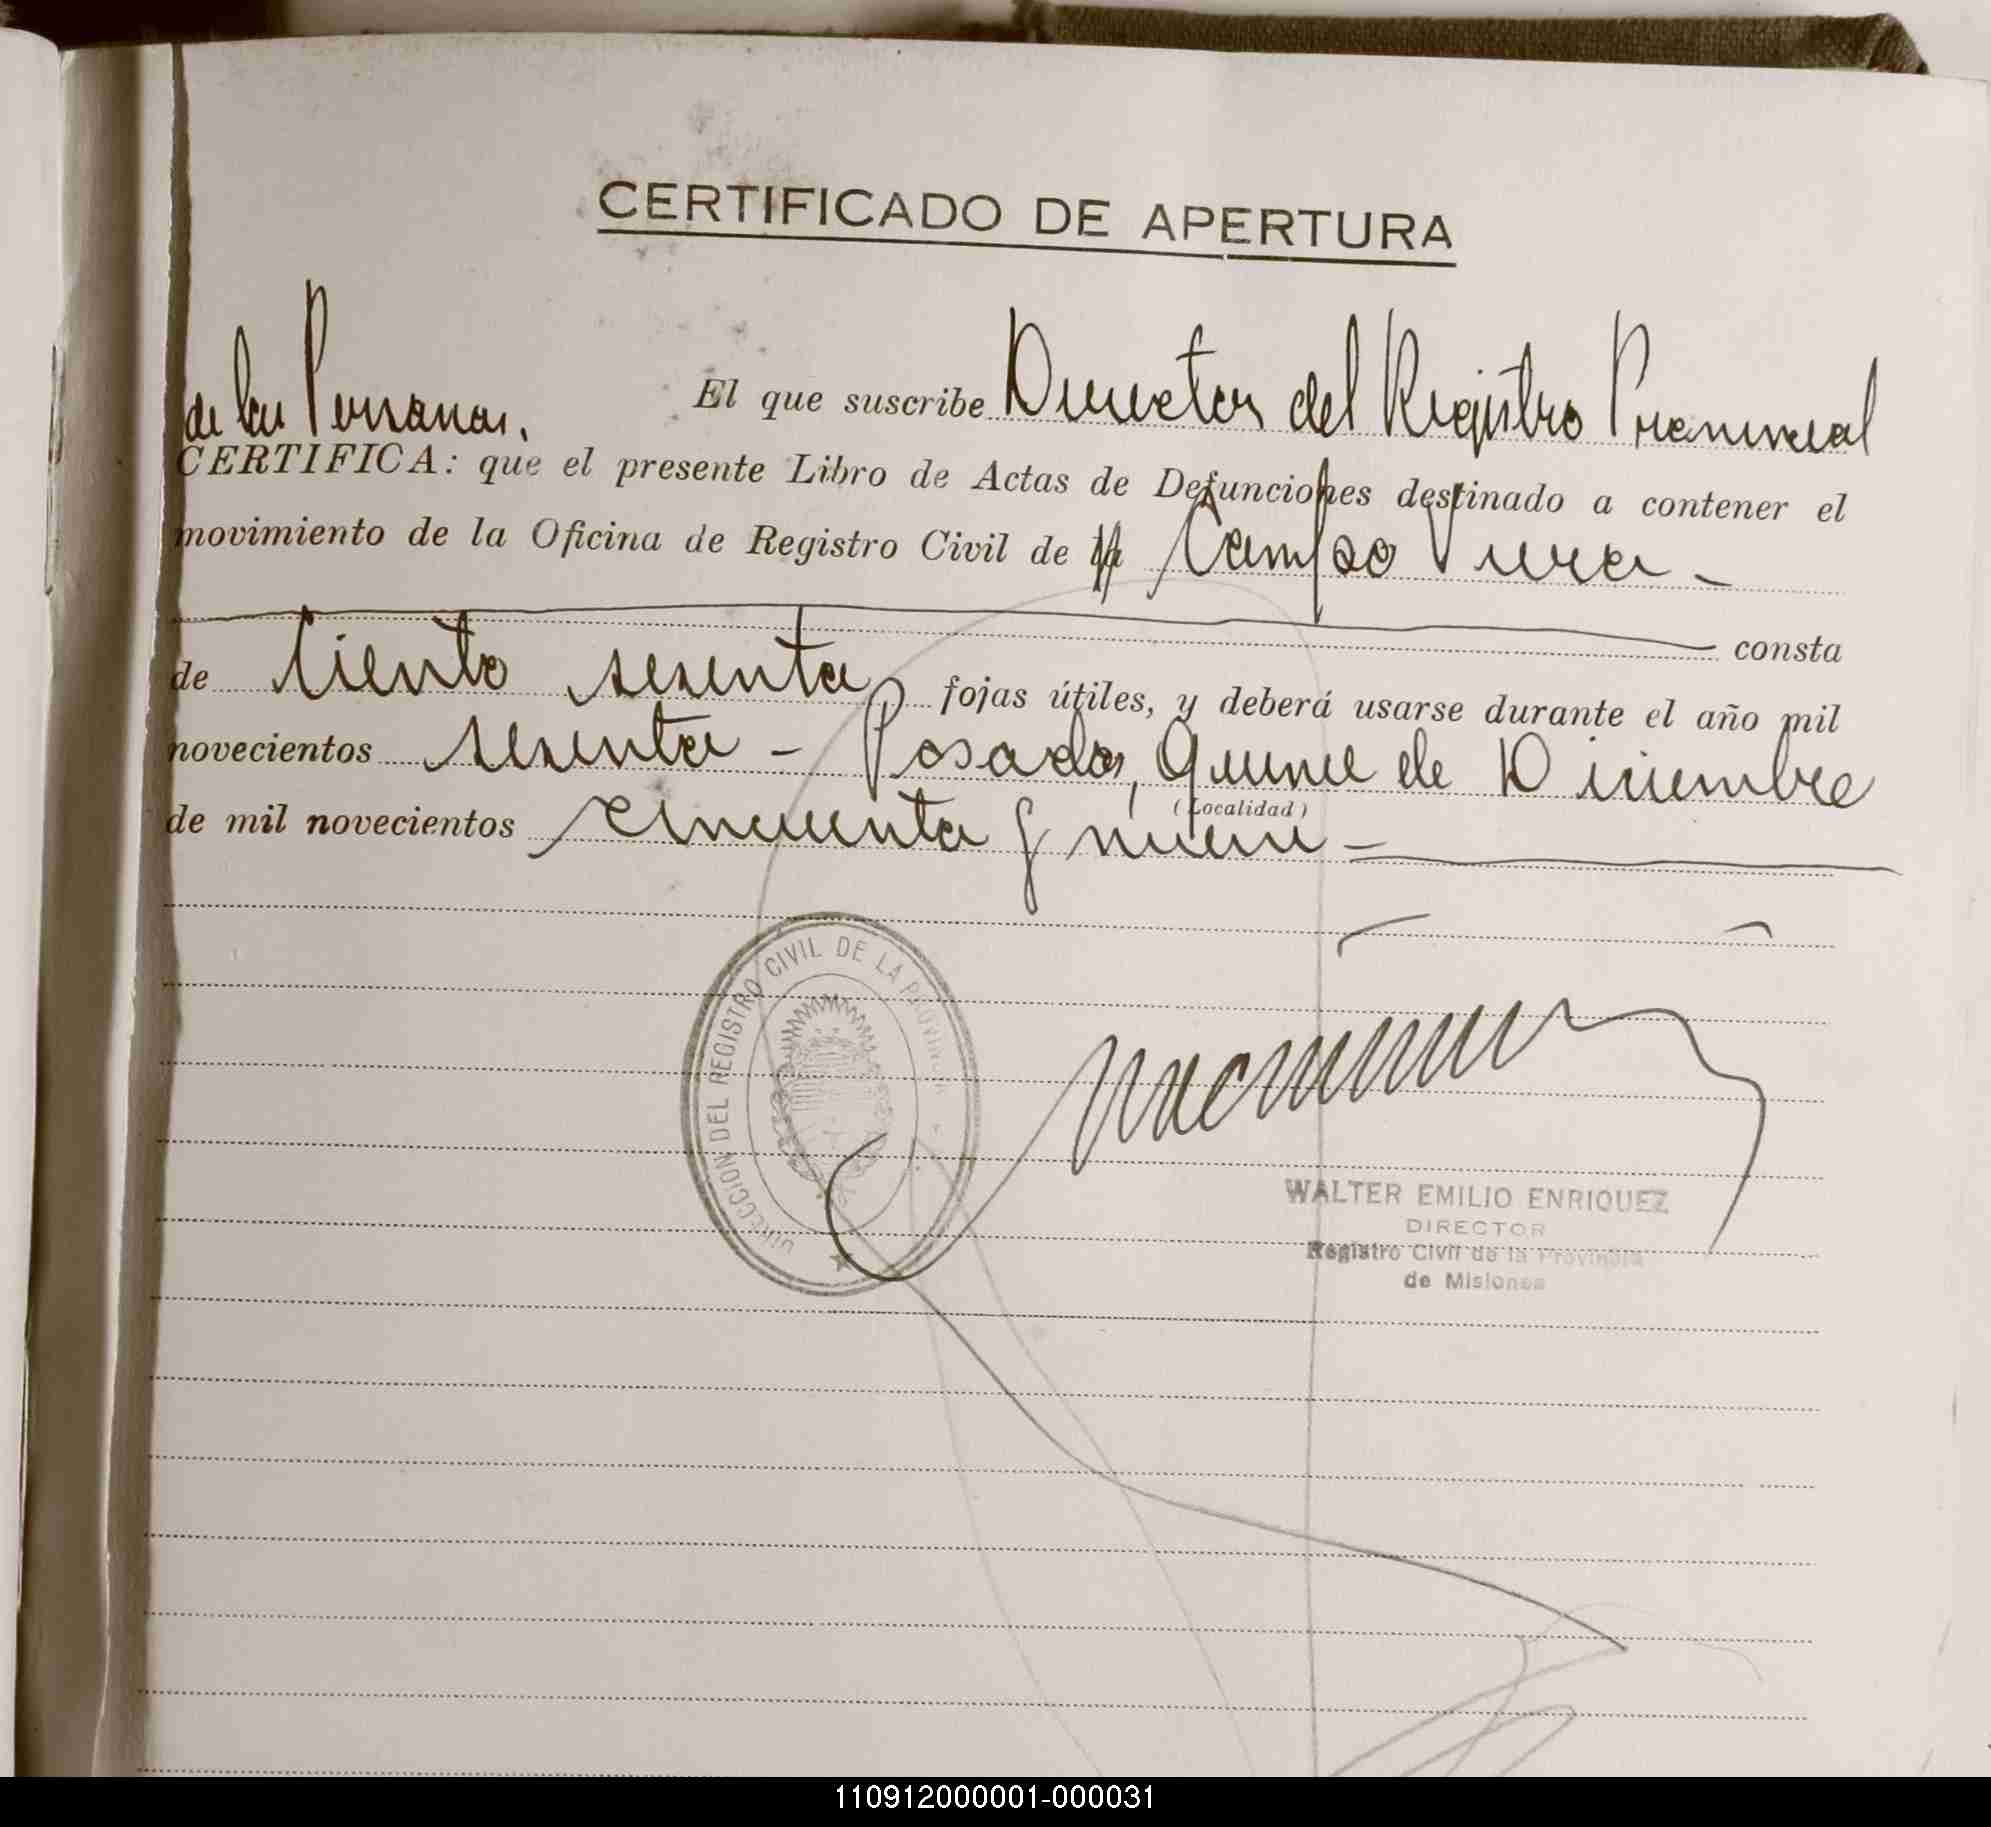 CERTIFICADO DE APERTURA
El que suscribe Director del Registro Provincial
de las Personas.
CERTIFICA: que el presente Libro de Actas de Defunciones destinado a contener el
movimiento de la Oficina de Registro Civil de Campo Viera -
consta
de Ciento sesenta fojas útiles, y deberá usarse durante el año mil
novecientos sesenta - Posadas, Quince de Diciembre
(Localidad)
de mil novecientos cincuenta y nueve -
DIRECCION DEL REGISTRO CIVIL DE LA PROVINCIA
WALTER EMILIO ENRIQUEZ
DIRECTOR
Registro Civil de la Provincia
de Misiones
110912000001-000031